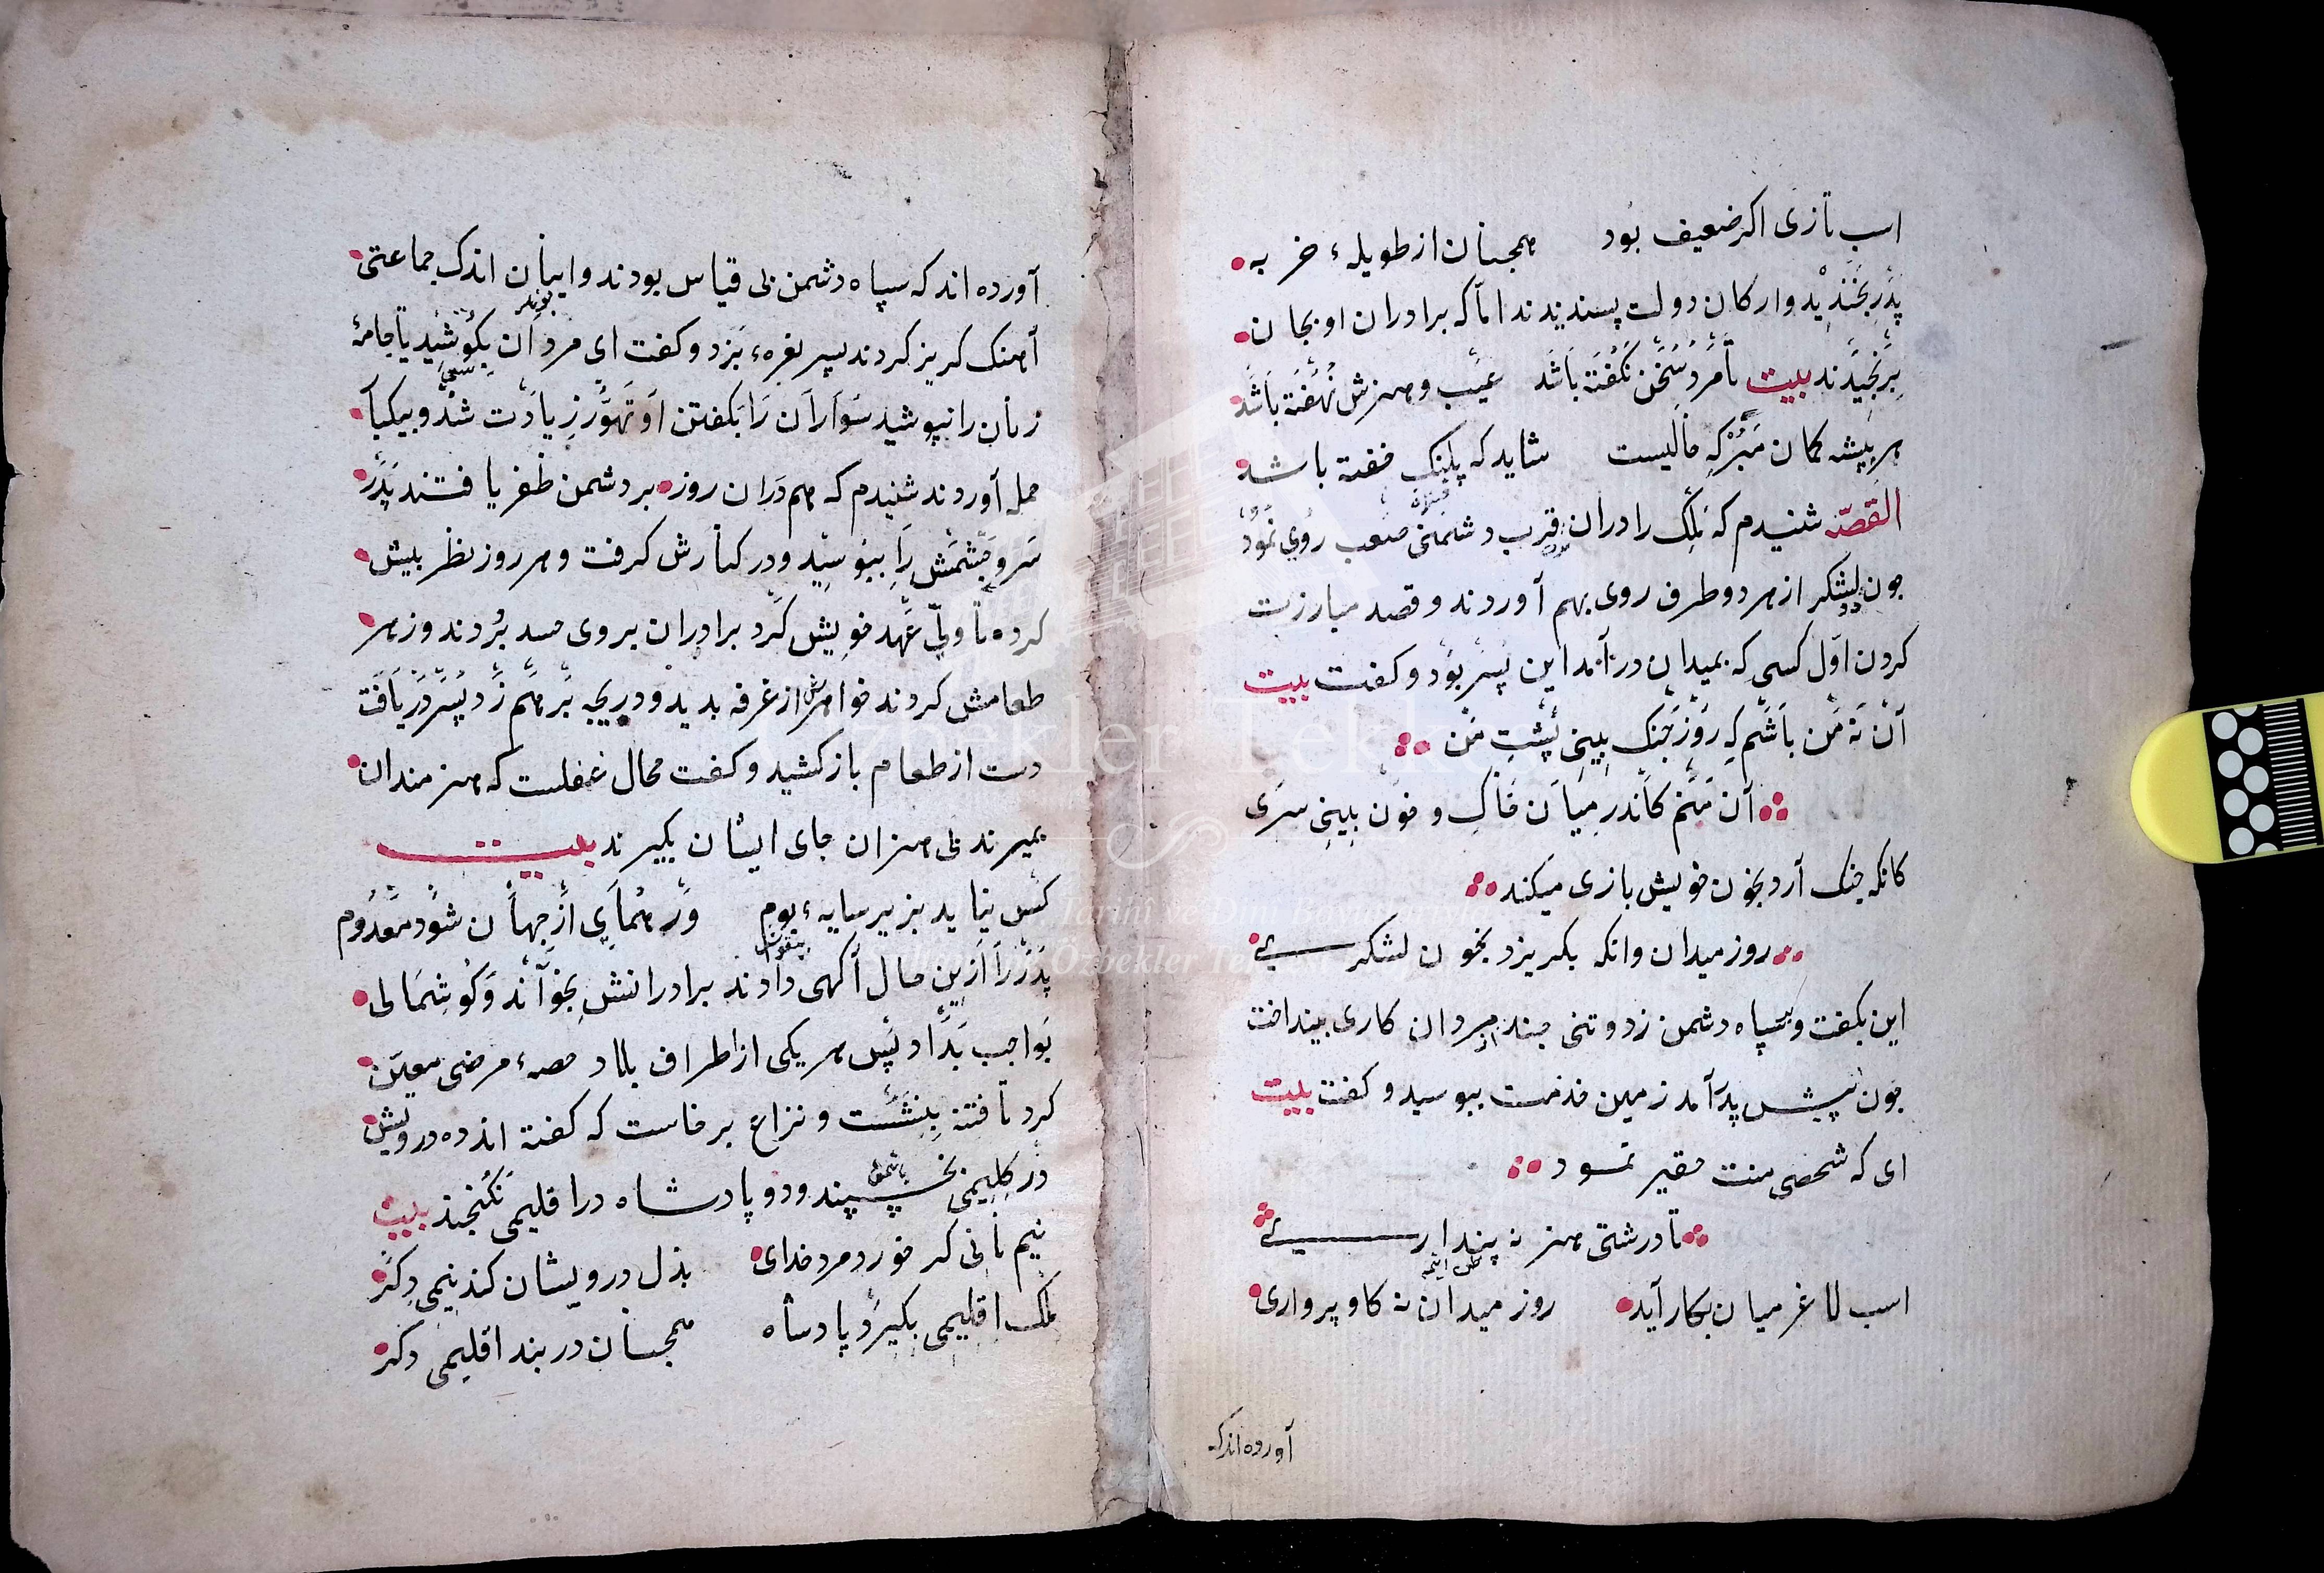 اسب تازی اکر ضعیف بود همجنان از طویلهء خر به
پدر بخندید وارکان دولت پسندیدند امّا که برادران او بجان
برنجیدند بیت تا مرد سخن نکفته باشد عیب وهنرش نهفته باشد
هر بیشه کمان مبر که خالیست شاید که پلنک خفته باشد
القصّه شنیدم که ملک را دران قرب دشمنی صعب روی نمود
جون لشکر از هر دو طرف روی بهم آوردند وقصد مبارزت
کردن اوّل کسی که بمیدان درآمد این پسر بود وکفت بیت
آن نه من باشم که روز جنک بینی پشت من
آن منم کاندر میان خاک وخون بینی سری
کانکه جنک آرد بخون خویش بازی میکند
روز میدان وانکه بکریزد بخون لشکری
این بکفت وبرسپاه دشمن زد وتنی جند از مردان کاری بینداخت
جون پیش پدر آمد زمین خدمت ببوسید وکفت بیت
ای که شخص منت حقیر نمود
تا درشتی هنر نه پنداری
اسب لاغر میان بکار آید روز میدان نه کاو پرواری
آورده اندکه
آورده اند که سپاه دشمن بی قیاس بودند وایشان اندک جماعتی
آهنک کریز کردند پسر نعرهء بزد وکفت ای مردان بکوشید یا جامهٔ
زنان را نپوشید سواران را بکفتن او تهوّر زیادت شد وبیکبا
حمله آوردند شنیدم که هم دران روز بر دشمن ظفر یافتند پدر
سر وجشمش را ببوسید ودر کنارش کرفت وهر روز نظر بیش
کرده تا ولیّ عهد خویش کرد برادران بروی حسد بردند وزهر
طعامش کردند خواهرش از غرفه بدید ودریجه بر هم زد پسر دریافت
دست از طعام باز کشید وکفت محال عقلست که هنرمندان
بمیرند بی هنران جای ایشان بکیرند بیت
کس نیاید بزیر سایهء بوم ور همای از جهان شود معدوم
پدر را ازین حال آکهی دادند برادرانش بخواند وکوشمالی
بواجب بداد پس هر یکی از اطراف بلاد حصهء مرضی معیّن
کرد تا فتنه بنشست ونزاع برخاست که کفته اند ده درویش
در کلیمی بخسپند ودو پادشاه در اقلیمی نکنجند بیت
نیم نانی کر خورد مرد خدای بذل درویشان کند نیمی دکر
ملک اقلیمی بکیرد پادشاه همجنان در بند اقلیمی دکر